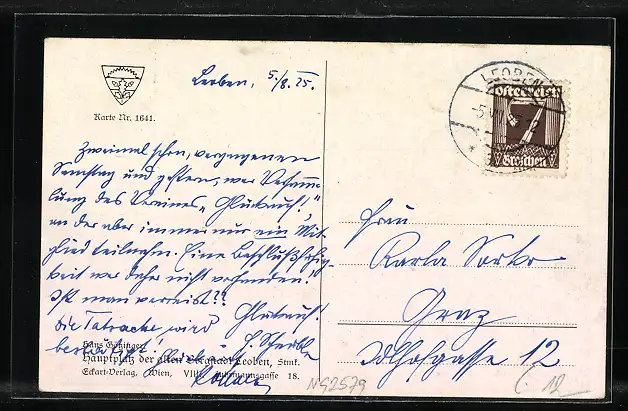 Karte Nr. 1641.
Leoben, 5./8. 25.
Zweimal schon, vergangenen
Samstag und gestern, war Versamm-
lung des Vereines „Glückauf!",
an der aber immer nur ein Mit-
glied teilnahm. Eine Beschlußfähig-
keit war daher nicht vorhanden!
Ist man verreist??
Glückauf!
Die Tatsache wird
bestätigt!
Hans Götzinger
Hauptplatz der alten Leoben, Stmk.
Eckart-Verlag, Wien, VIII., gasse 18.
LEOBEN
Österreich
7
Groschen
Frau
Karla
Graz
12
N92579
12